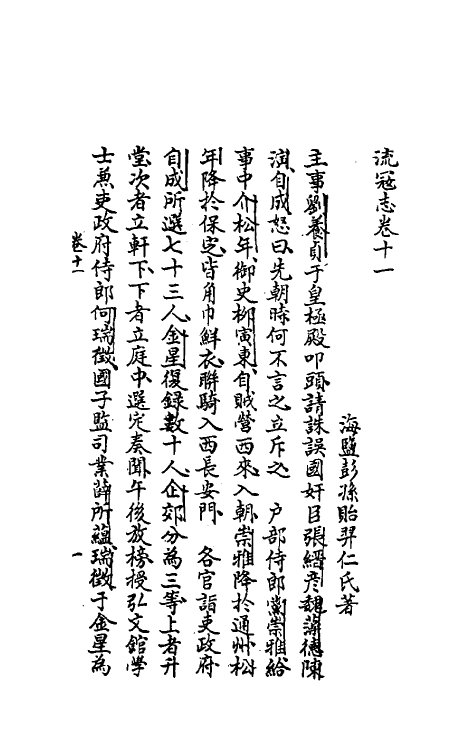 流寇志卷十一
海鹽彭孫貽羿仁氏著
主事劉養貞于皇極殿叩頭請誅誤國奸臣張縉彦魏藻德陳
演自成怒曰先朝時何不言之立斥之　户部侍郎黨崇雅給
事中介松年御史柳寅東自賊營西來入朝崇雅降於通州松
年降於保定皆角巾鮮衣聯騎入西長安門　各官詣吏政府
自成所選七十三人金星復録數十人企郊分為三等上者升
堂次者立軒下下者立庭中選定奏聞午後放榜授弘文館學
士兼吏政府侍郎何瑞徵國子監司業薛所蘊瑞徵于金星為
卷十一
一